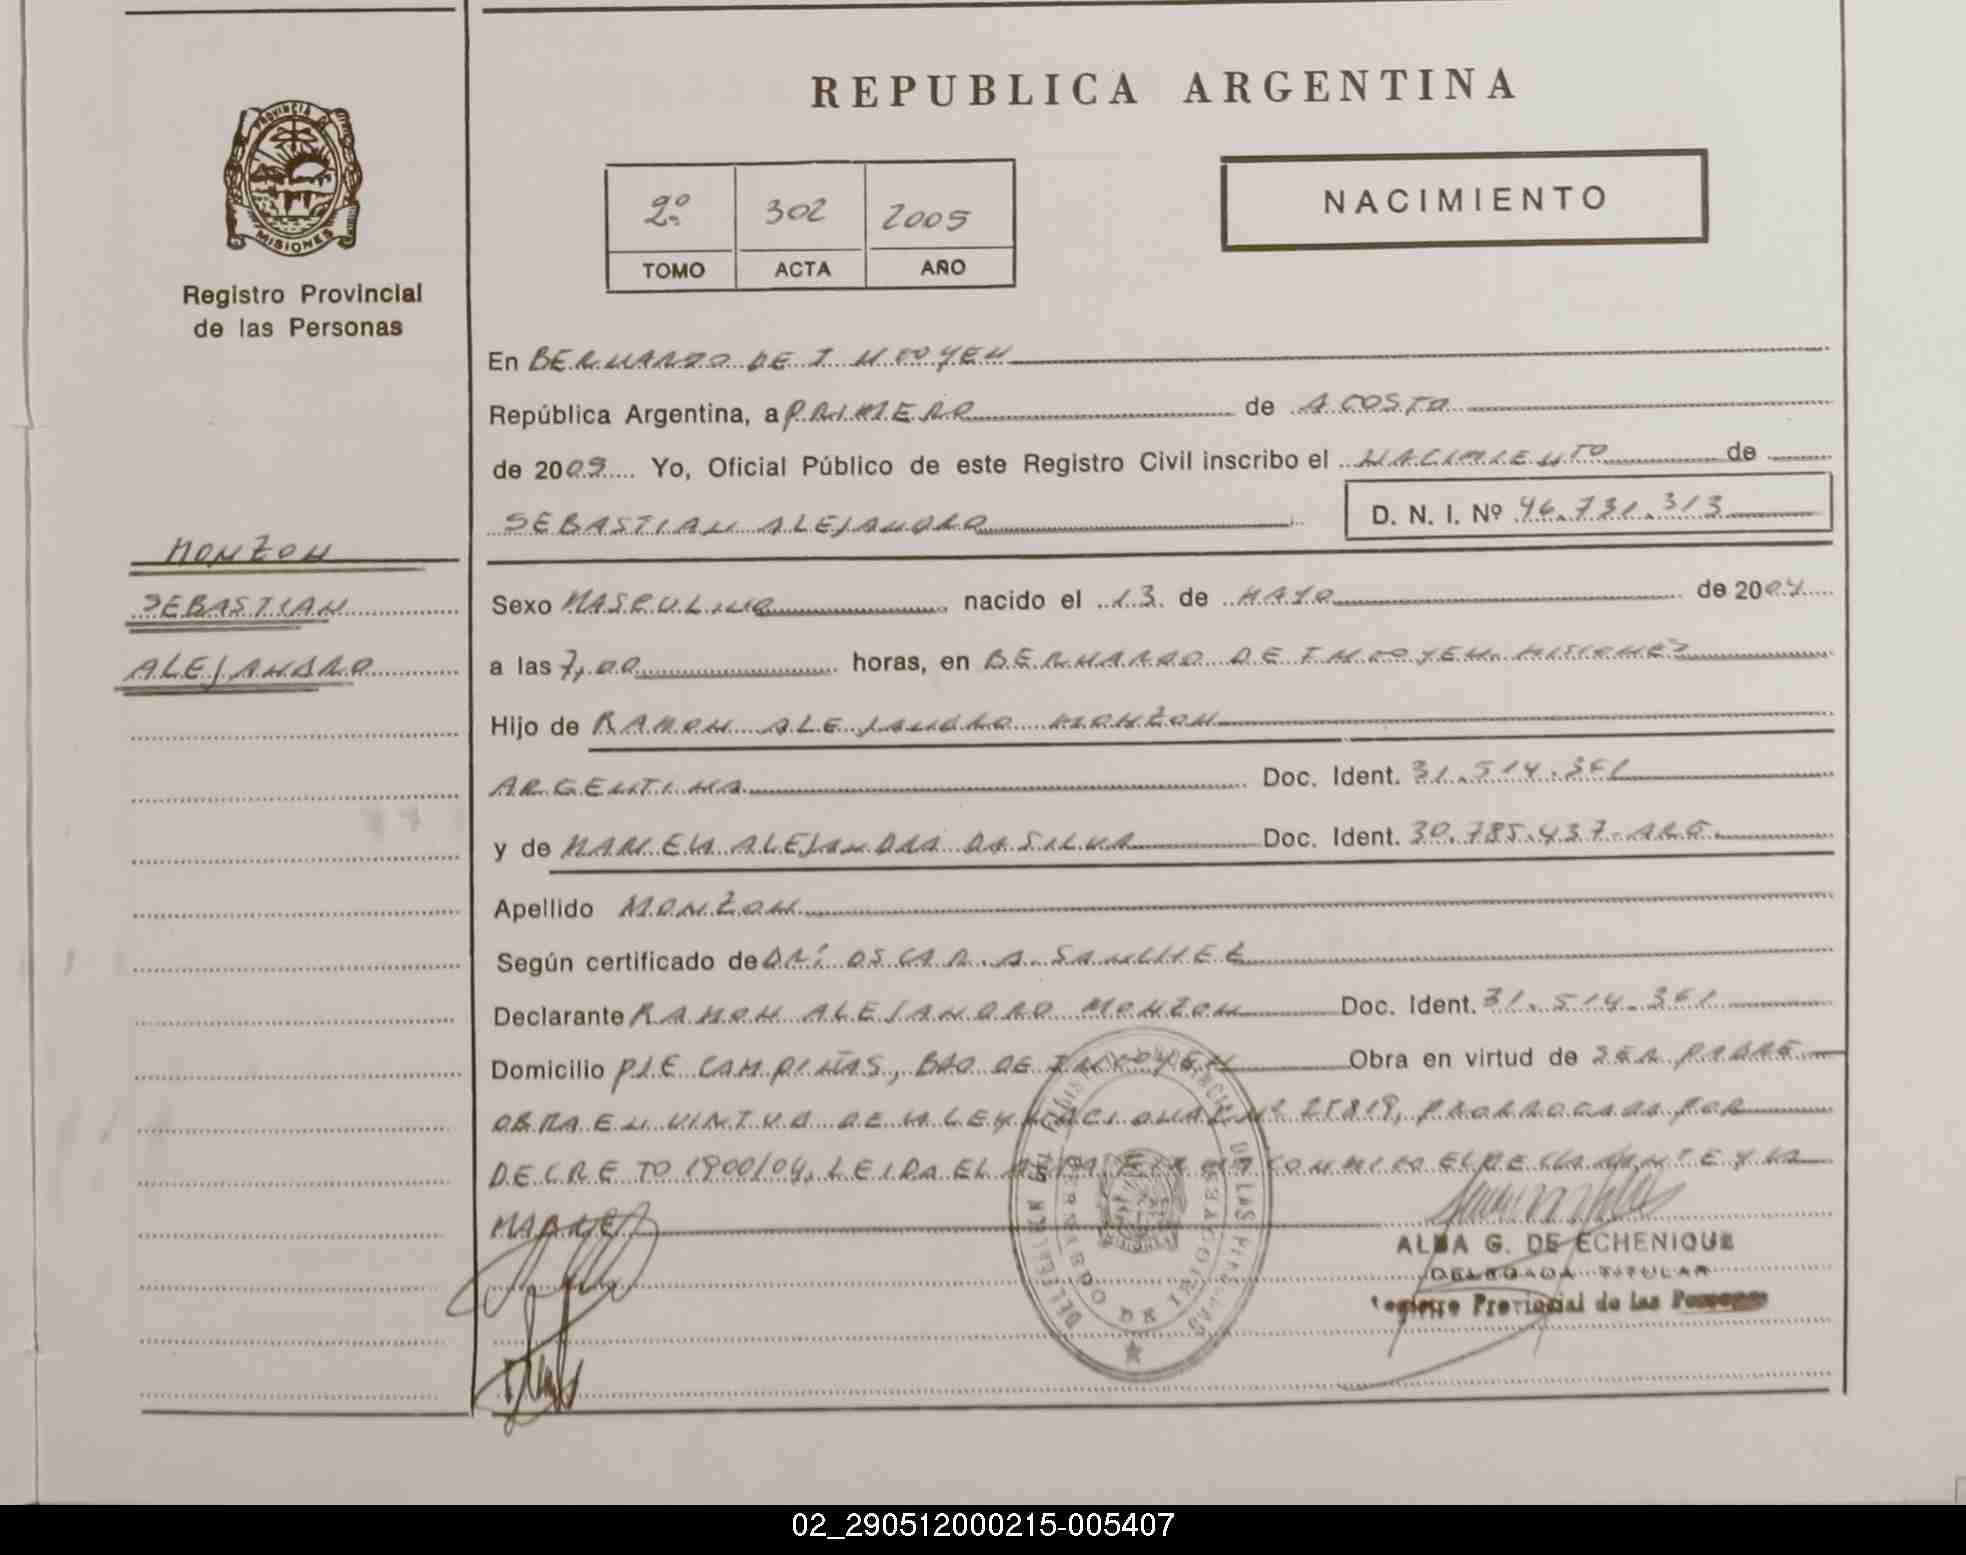 REPUBLICA ARGENTINA
PROVINCIA DE
MISIONES
Registro Provincial
de las Personas
2º 302 2005
TOMO ACTA AÑO
NACIMIENTO
En BERNARDO DE IRIGOYEN
República Argentina, a PRIMERO de AGOSTO
de 2005 Yo, Oficial Público de este Registro Civil inscribo el NACIMIENTO de
SEBASTIAN ALEJANDRO D. N. I. Nº 46.731.313
MONZON
SEBASTIAN
ALEJANDRO
Sexo MASCULINO nacido el 13 de MAYO de 2004
a las 7,00 horas, en BERNARDO DE IRIGOYEN. MISIONES
Hijo de RAMON ALEJANDRO MONZON
ARGENTINA Doc. Ident. 31.514.361
y de MARIELA ALEJANDRA DA SILVA Doc. Ident. 30.785.437-ARG.
Apellido MONZON
Según certificado de DR: OSCAR A. SANCHEZ
Declarante RAMON ALEJANDRO MONZON Doc. Ident. 31.514.361
Domicilio PJE CAMPIÑAS, BDO DE IRIGOYEN Obra en virtud de SER PADRE
OBRA EN VIRTUD DE LA LEY NACIONAL Nº 25819, PRORROGADA POR
DECRETO 1900/04, LEIDA EL ACTA, FIRMA CONMIGO EL DECLARANTE Y LA
MADRE
ALBA G. DE ECHENIQUE
DELEGADA TITULAR
Registro Provincial de las Personas
02_290512000215-005407